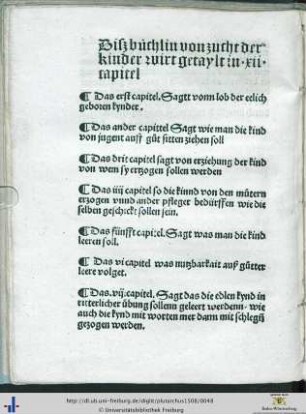 Disz büchlin von zucht der
kinder wirt getaylt in .xii.
capitel
¶ Das erst capitel. Sagtt vonn lob der eelich
geboren kynder.
¶ Das ander capittel Sagt wie man die kind
von jugent auff gůt sitten ziehen soll
¶ Das drit capitel sagt von erziehung der kind
von wem sy erzogen sollen werden
¶ Das iiij capitel so die kinnd von den můtern
erzogen vnnd ander pfleger bedürffen wie die
selben geschickt sollen sein.
¶ Das fünfft capitel. Sagt was man die kind
leeren soll.
¶ Das vi capitel was nutzbarkait auß gůtter
leere volget.
¶ Das .vij. capitel, Sagt das die edlen kynd in
ritterlicher übung sollenn geleert werdenn. wie
auch die kynd mit worten mer dann mit schlegn̄
gezogen werden.
http://dl.ub.uni-freiburg.de/diglit/plutarchus1508/0048
© Universitätsbibliothek Freiburg
Baden-Württemberg